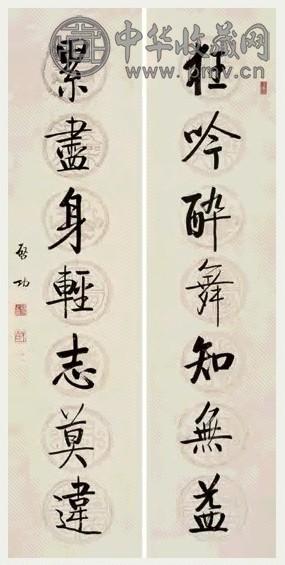 中华收藏网
www.pmv.cn
狂吟醉舞知無益
累盡身輕志莫違
啓功